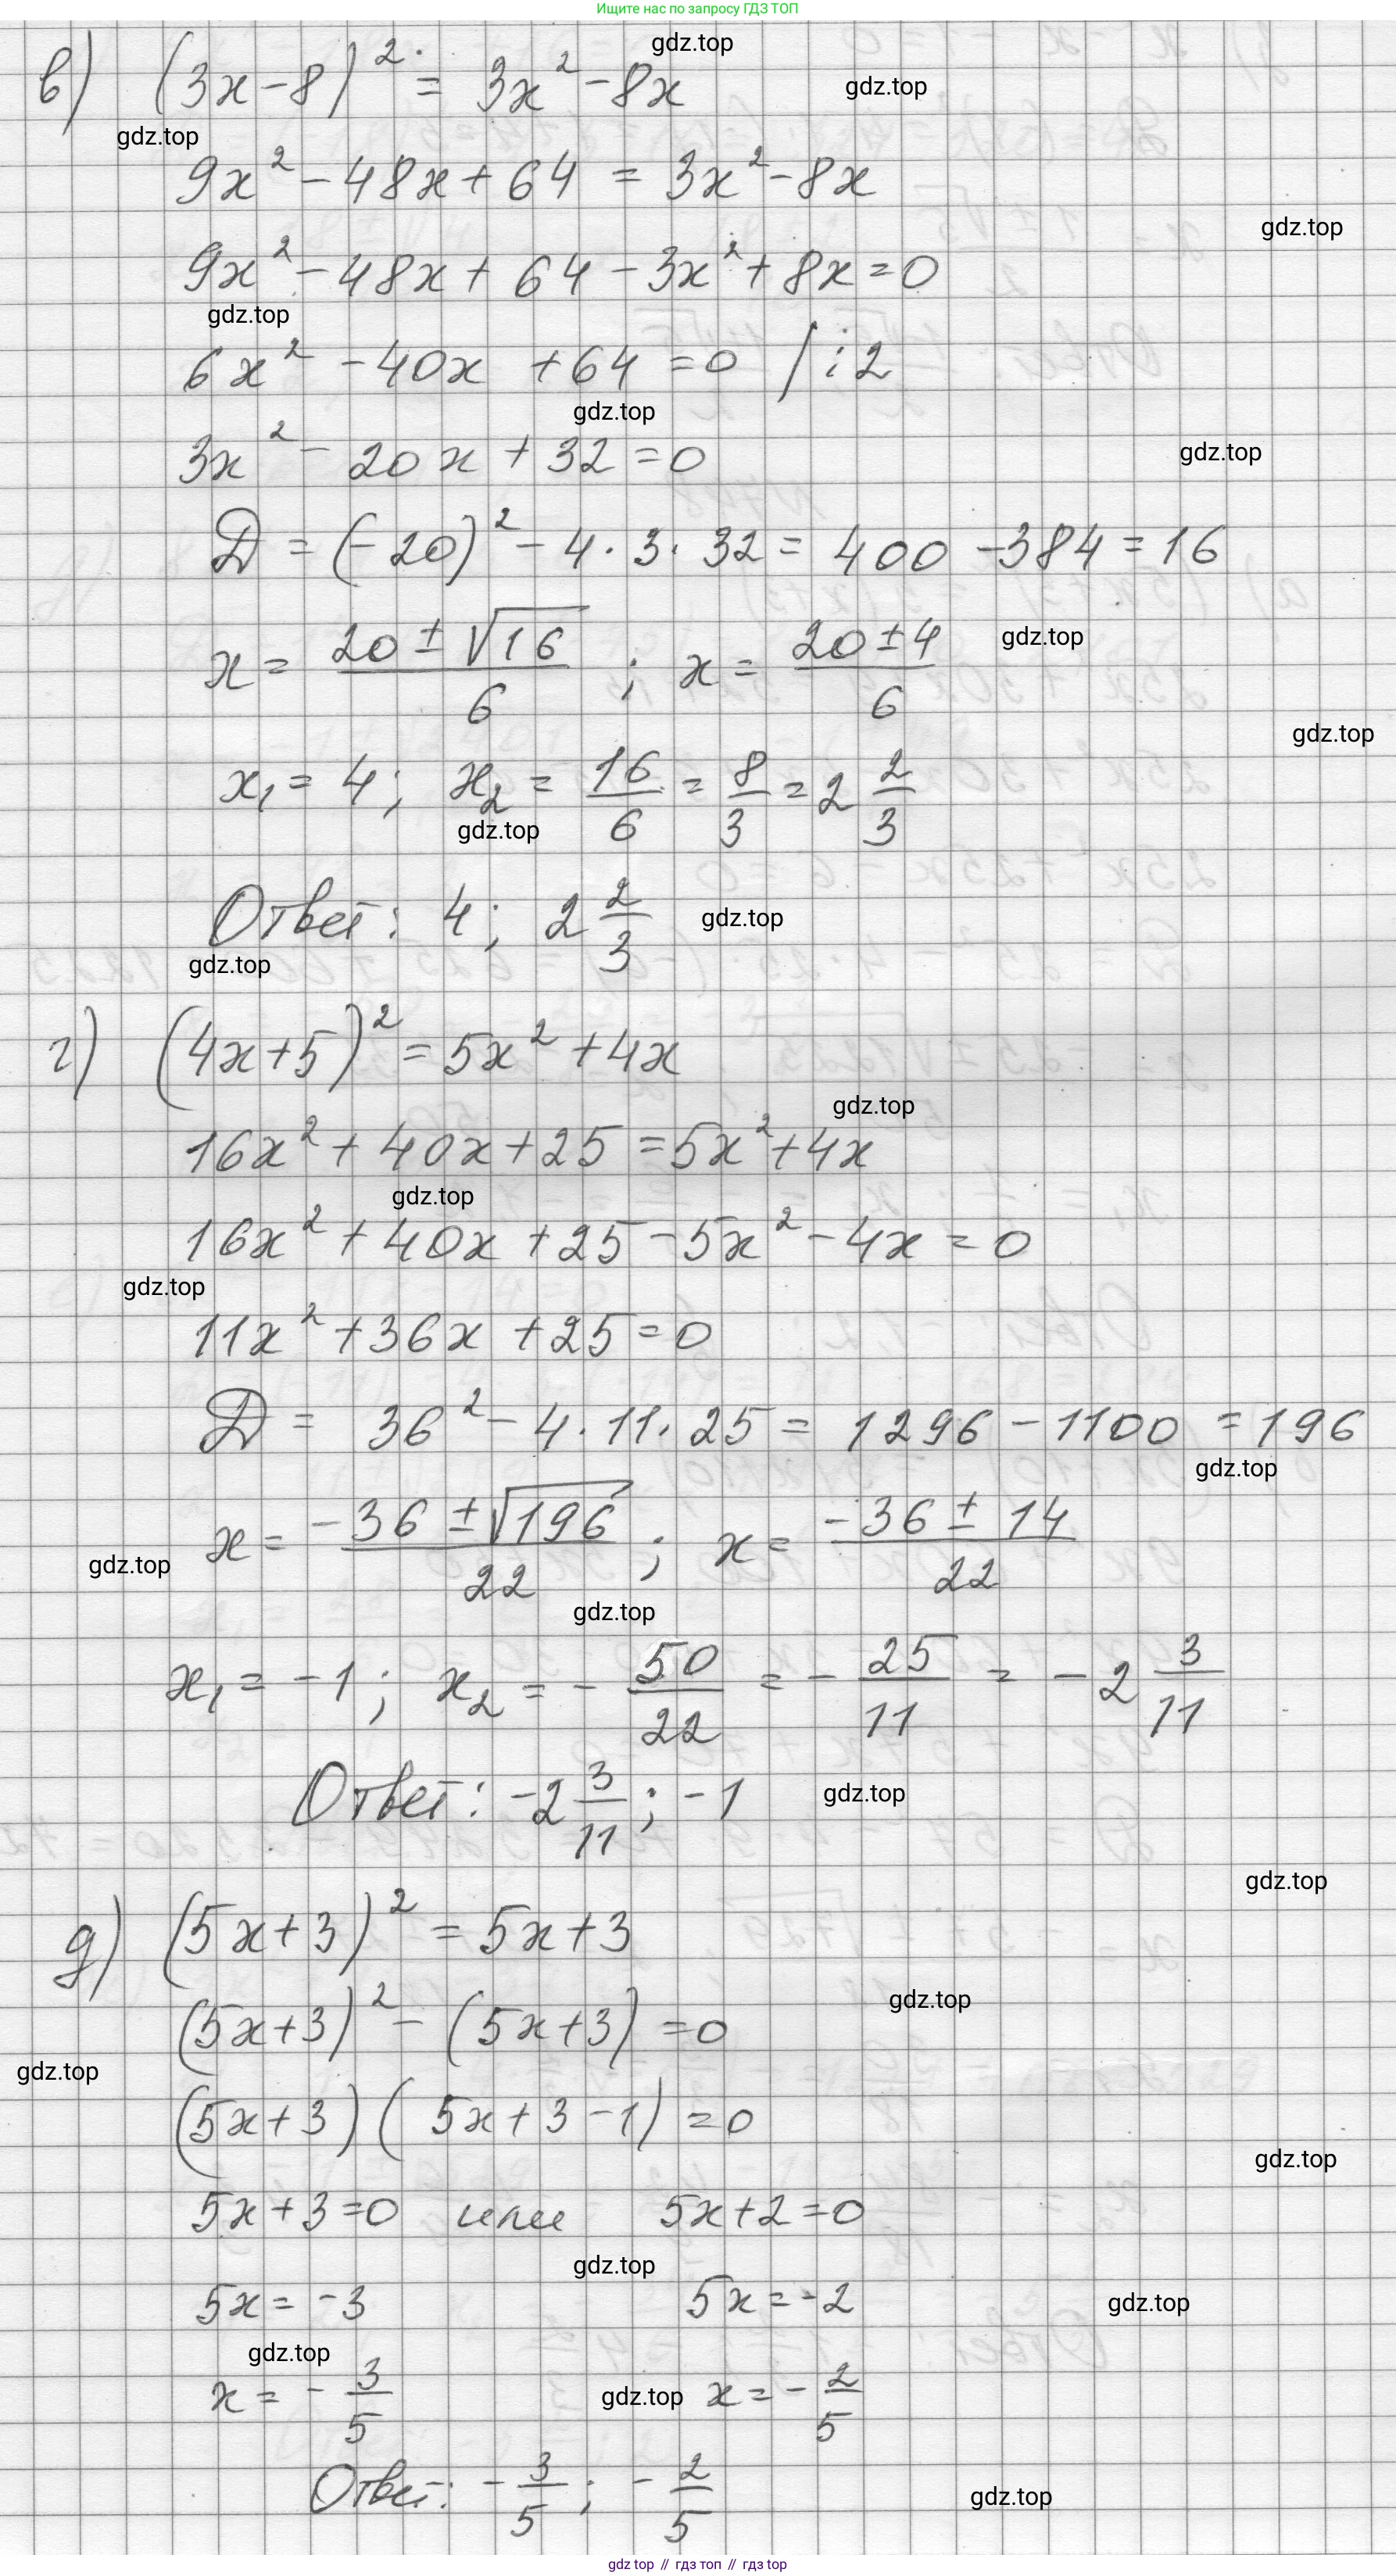 Ищите нас по запросу ГДЗ ТОП
в) (3x-8)² = 3x²-8x
gdz.top
gdz.top
gdz.top
9x²-48x+64 = 3x²-8x
gdz.top
9x²-48x+64-3x²+8x=0
gdz.top
6x²-40x+64=0 /:2
gdz.top
3x²-20x+32=0
gdz.top
D = (-20)²-4·3·32 = 400-384=16
x = (20±√16)/6 ; x = (20±4)/6
gdz.top
gdz.top
x₁ = 4; x₂ = 16/6 = 8/3 = 2 2/3
gdz.top
Ответ: 4; 2 2/3
gdz.top
gdz.top
г) (4x+5)² = 5x²+4x
gdz.top
16x²+40x+25=5x²+4x
gdz.top
16x²+40x+25-5x²-4x=0
gdz.top
11x²+36x+25=0
D = 36²-4·11·25 = 1296-1100 = 196
gdz.top
x = (-36±√196)/22 ; x = (-36±14)/22
gdz.top
gdz.top
x₁ = -1; x₂ = -50/22 = -25/11 = -2 3/11
Ответ: -2 3/11; -1
gdz.top
gdz.top
д) (5x+3)² = 5x+3
gdz.top
(5x+3)²-(5x+3)=0
gdz.top
(5x+3)(5x+3-1)=0
gdz.top
5x+3=0 или 5x+2=0
gdz.top
5x=-3 5x=-2
gdz.top
gdz.top
x=-3/5 x=-2/5
gdz.top
Ответ: -3/5; -2/5
gdz.top
gdz top // гдз топ // гдз top